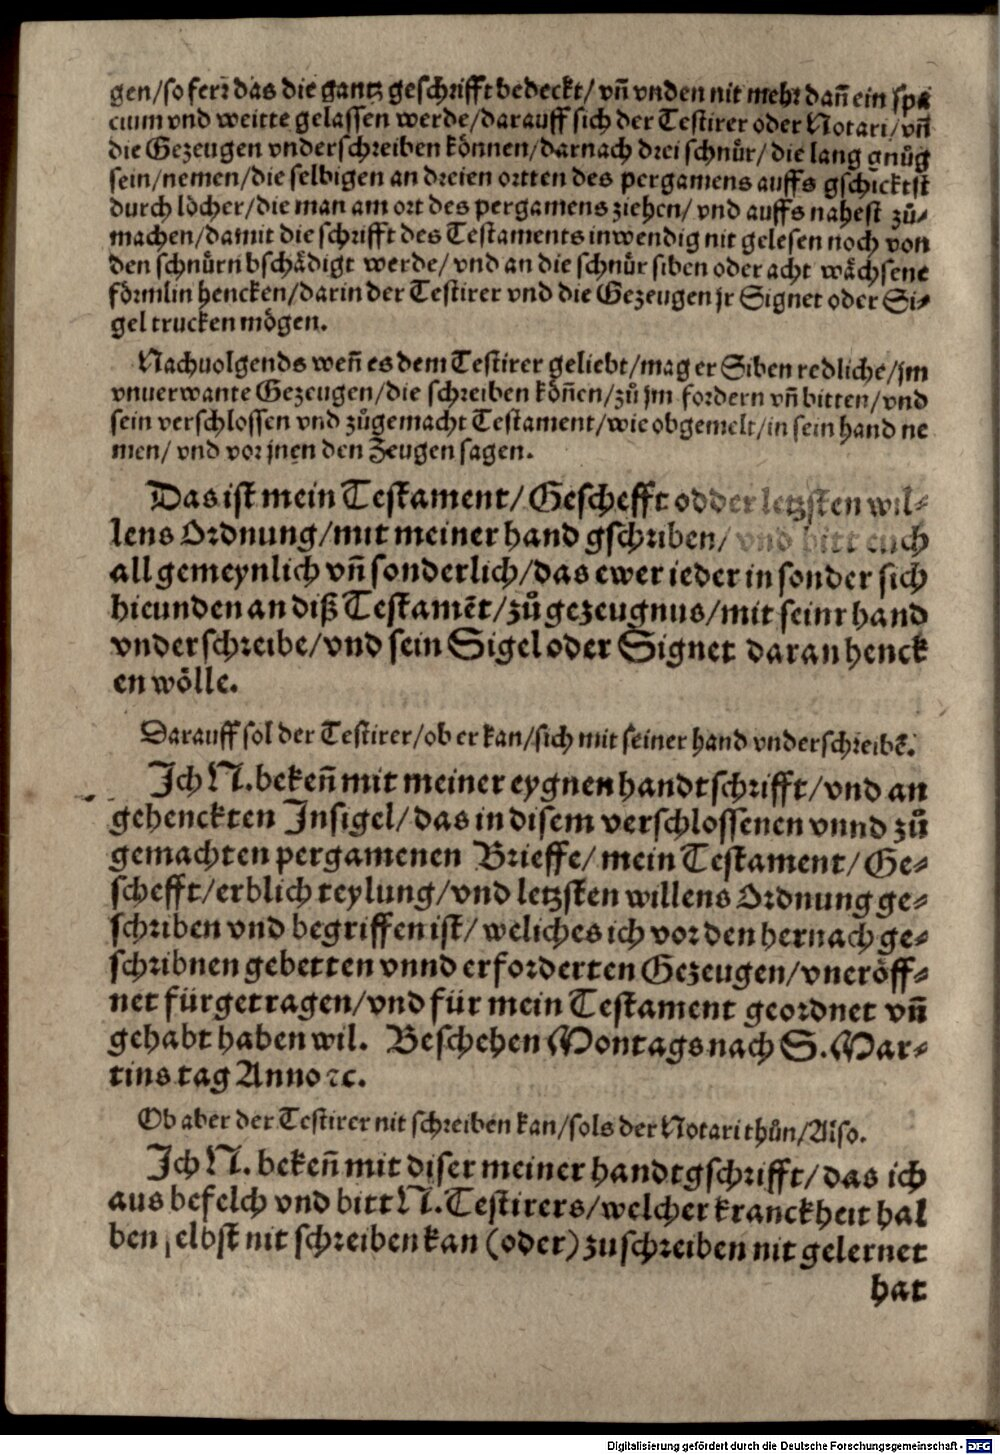 gen/so ferꝛ das die gantz geschrifft bedeckt/ vñ vnden nit mehr dañ ein spa
cium vnd weitte gelassen werde/darauff sich der Testirer oder Notari/vñ
die Gezeugen vnderschreiben können/darnach drei schnůr/ die lang gnůg
sein/nemen/die selbigen an dreien ortten des pergamens auffs gschicktst
durch löcher/die man am ort des pergamens ziehen/ vnd auffs nahest zů⸗
machen/damit die schrifft des Testaments inwendig nit gelesen noch von
den schnůrn bschädigt werde/ vnd an die schnůr siben oder acht wächsene
förmlin hencken/darin der Testirer vnd die Gezeugen jr Signet oder Si⸗
gel trucken mögen.
Nachuolgends weñ es dem Testirer geliebt/mag er Siben redliche/jm
vnuerwante Gezeugen/die schreiben köñen/zů jm fordern vñ bitten/vnd
sein verschlossen vnd zůgemacht Testament/wie obgemelt/in sein hand ne
men/ vnd vor jnen den Zeugen sagen.
Das ist mein Testament/ Geschefft odder letzsten wil⸗
lens Ordnung/mit meiner hand gschriben/ vnd bitt euch
all gemeynlich vñ sonderlich/das ewer ieder in sonder sich
hieunden an diß Testamēt/zů gezeugnus/mit seinr hand
vnderschreibe/vnd sein Sigel oder Signet daran henck
en wölle.
Darauff sol der Testirer/ob er kan/sich mit seiner hand vnderschreibē.
Ich N. bekeñ mit meiner eygnen handtschrifft/vnd an
gehenckten Insigel/das in disem verschlossenen vnnd zů
gemachten pergamenen Brieffe/ mein Testament/ Ge⸗
schefft/erblich teylung/vnd letzsten willens Ordnung ge⸗
schriben vnd begriffen ist/ weliches ich vor den hernach ge⸗
schribnen gebetten vnnd erforderten Gezeugen/vneröff⸗
net fürgetragen/vnd für mein Testament geordnet vñ
gehabt haben wil. Beschehen Montags nach S. Mar⸗
tins tag Anno ꝛc.
Ob aber der Testirer nit schreiben kan/sols der Notari thůn/Also.
Ich N. bekeñ mit diser meiner handtgschrifft/ das ich
aus befelch vnd bitt N. Testirers/welcher kranckheit hal
ben selbst nit schreiben kan (oder) zu schreiben nit gelernet
hat
Digitalisierung gefördert durch die Deutsche Forschungsgemeinschaft - DFG